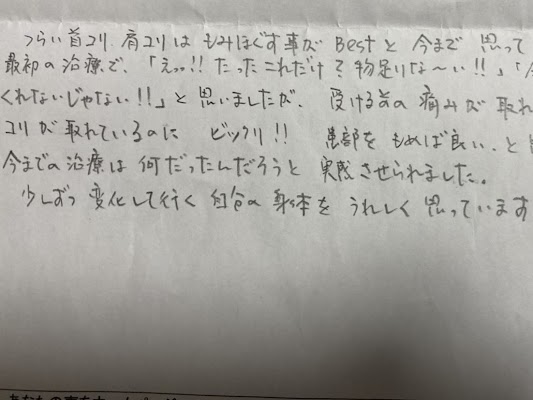 つらい首コリ、肩コリは もみほぐす事が Bestと 今まで 思って
最初の治療で、「えっ!! たったこれだけ?物足りな〜い!!」「
くれないじゃない!!」と思いましたが、 受ける前の 痛みが 取れ
コリが 取れているのに ビックリ!! 患部を もめば良い、と
今までの治療は 何だったんだろうと 実感 させられました。
少しずつ 変化して行く 自分の 身体を うれしく 思っています